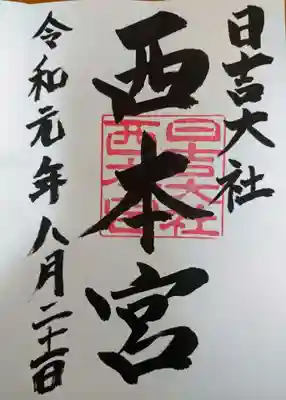 日吉大社
西本宮
日吉大社
西本宮
令和元年八月二十一日